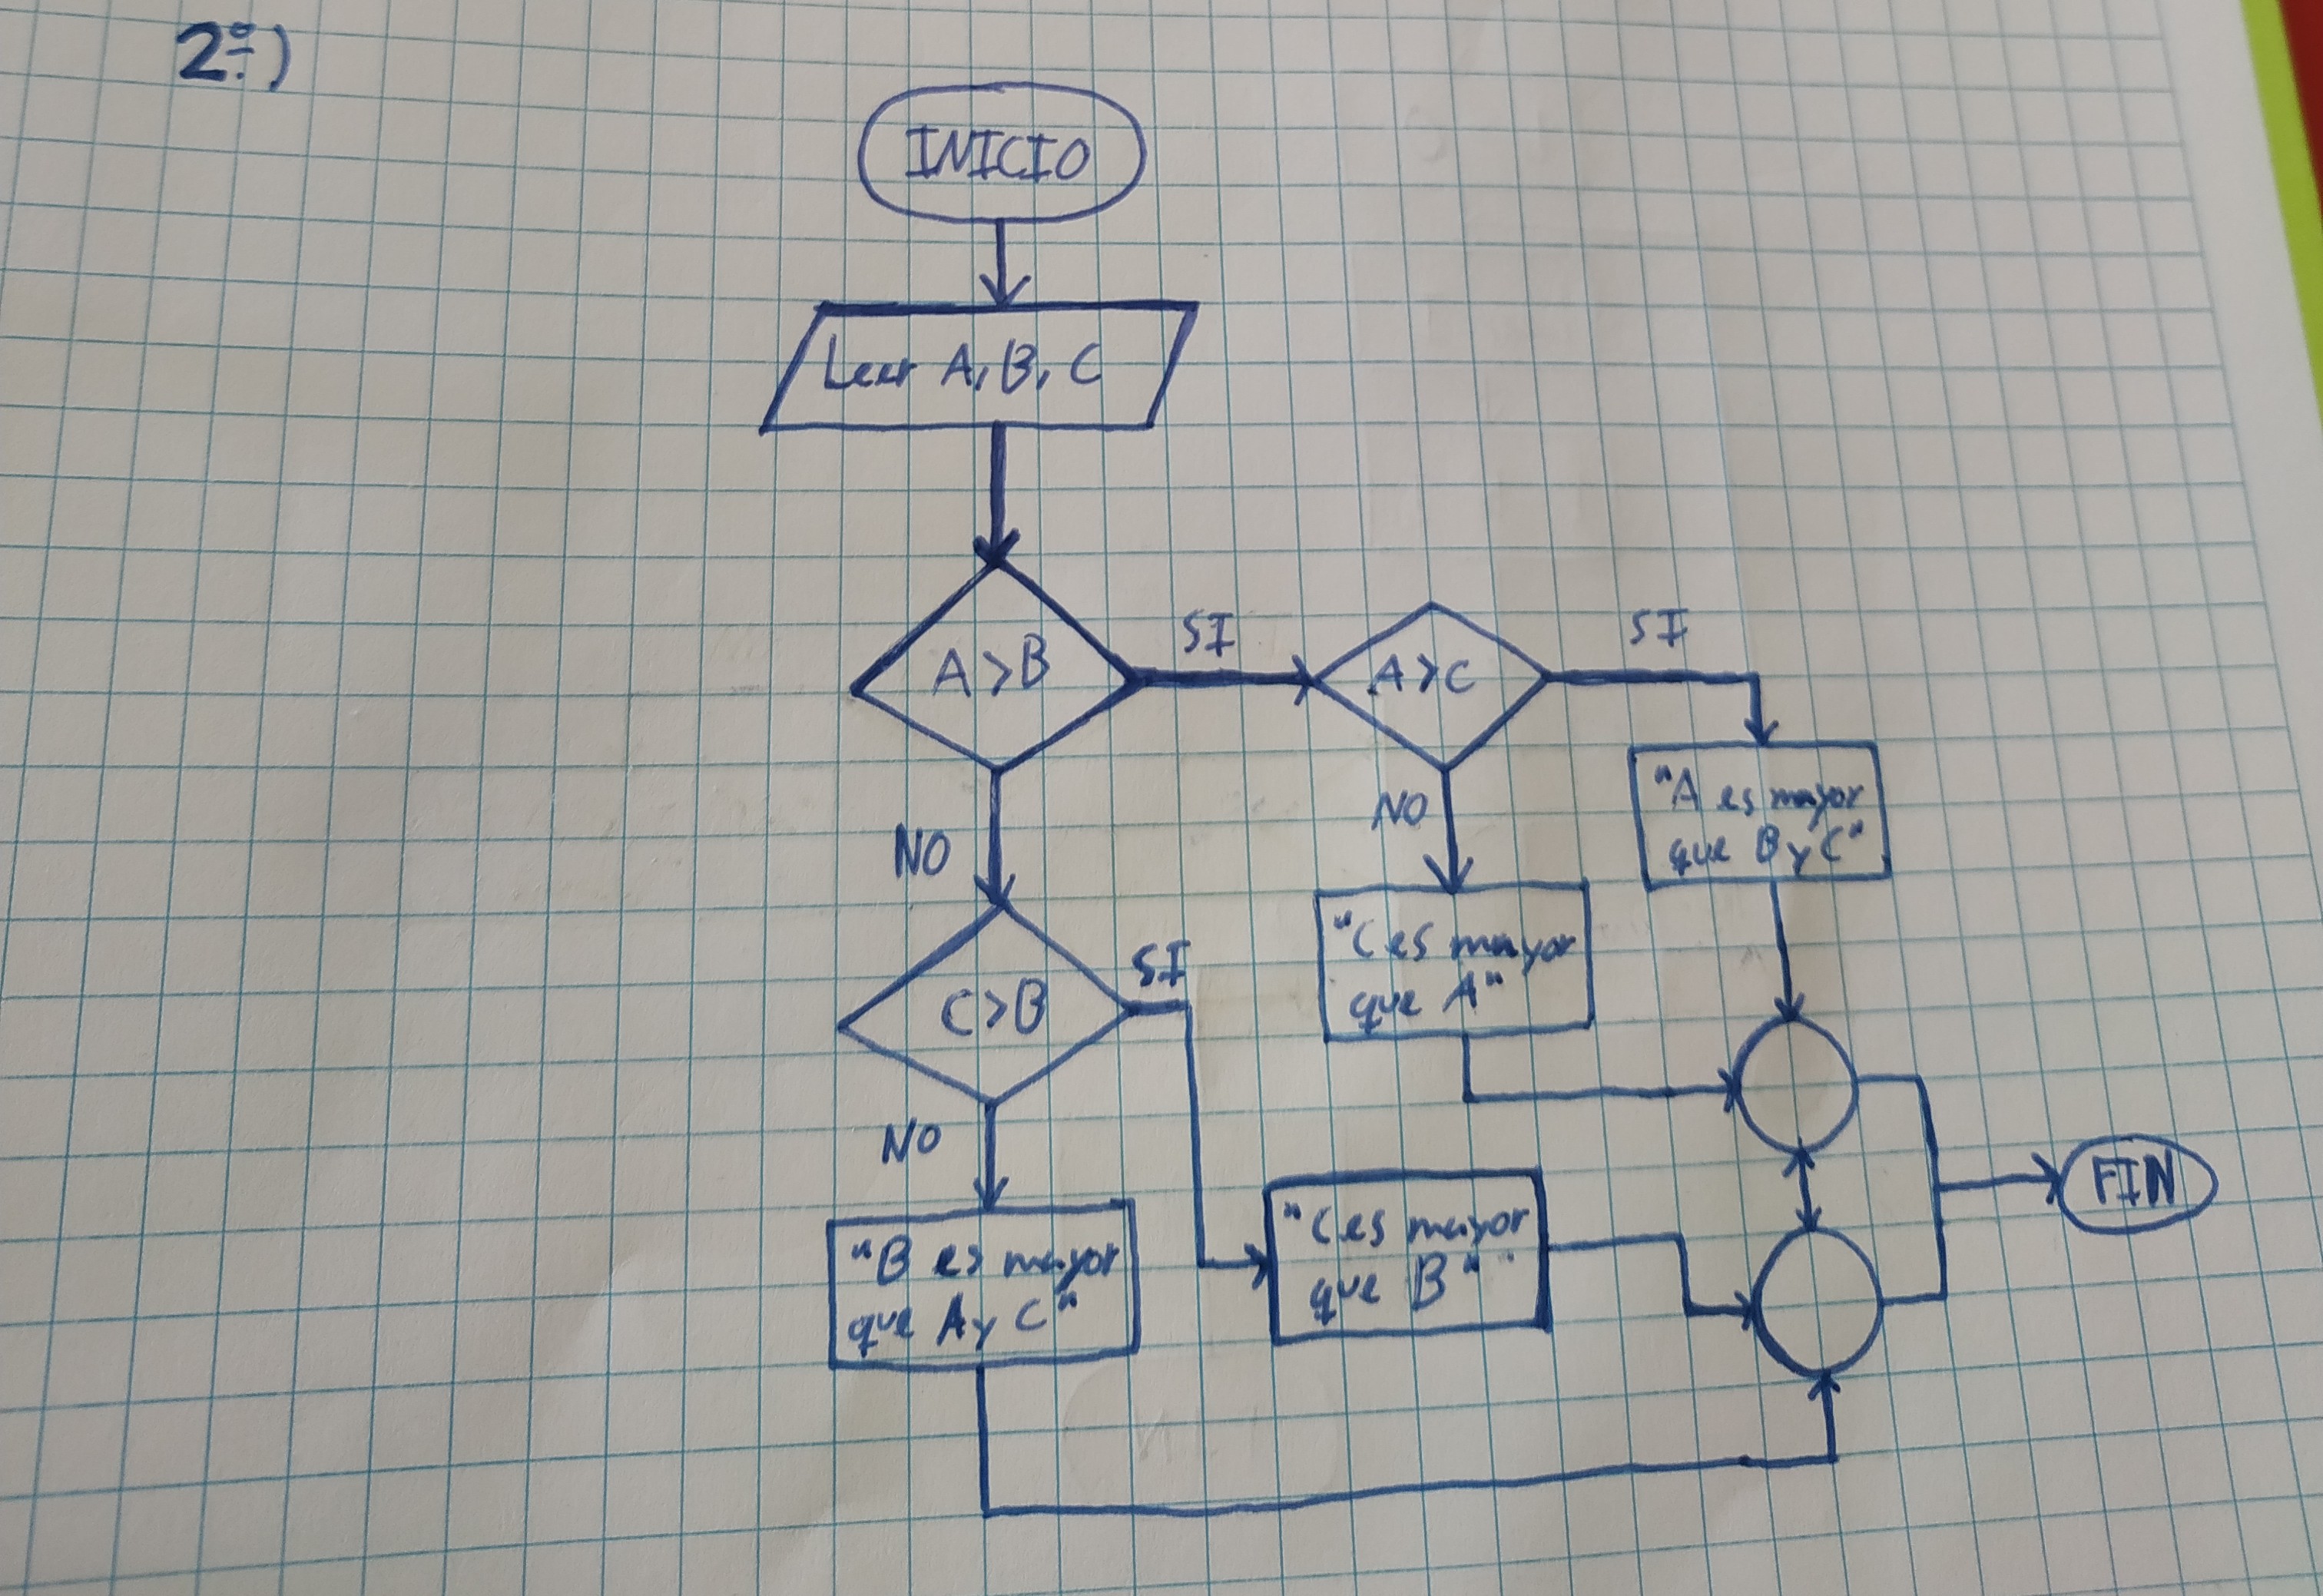 2º)
INICIO
Leer A, B, C
A>B
SI
A>C
SI
"A es mayor
que B y C"
NO
"C es mayor
que A"
NO
C>B
SI
NO
"B es mayor
que A y C"
"C es mayor
que B"
FIN